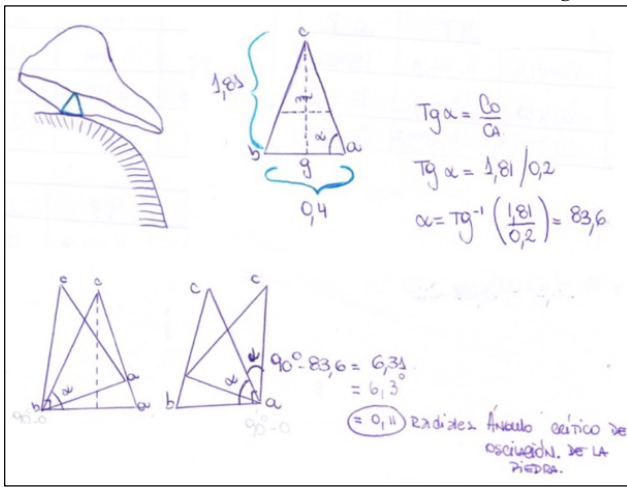 c
1,81
α
b
a
g
0,4
Tg α = Co/CA.
Tg α = 1,81/0,2
α = Tg⁻¹ (1,81/0,2) = 83,6
c c
α
a
b a
90°-0
c c
α
b a
90°-0
90°-83,6 = 6,31
= 6,3°
= 0,11 Radiales Ángulo crítico de
oscilación. de la
piedra.